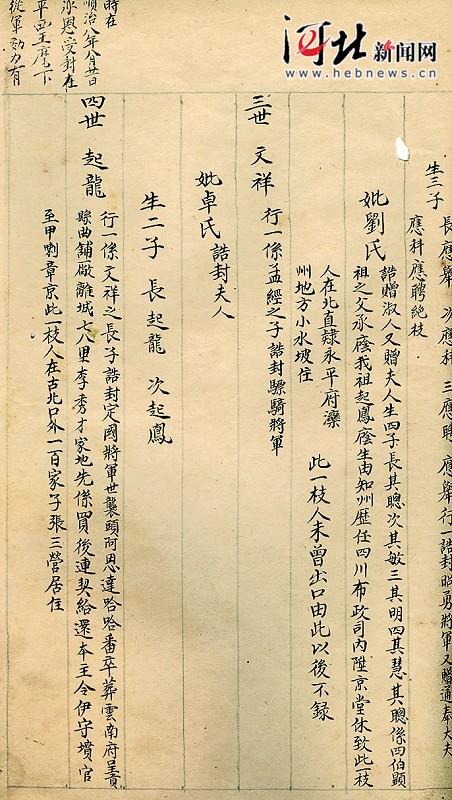 河北新闻网
www.hebnews.cn
生三子 長應舉 次應科 三應聘 應舉行一誥封昭勇將軍又贈通奉大夫
應科應聘絕枝
妣劉氏 誥贈淑人又贈夫人生四子長其聰次其敏三其明四其慧其聰係四伯顯
祖之父承廕我祖起鳳廕生由知州歷任四川布政司內陞京堂休致此一枝
人在北直隸永平府灤
州地方小水坡住
此一枝人未曾出口由此以後不録
三世 文祥 行一係孟經之子誥封驃騎將軍
妣卓氏 誥封夫人
生二子 長起龍 次起鳳
四世 起龍 行一係文祥之長子誥封定國將軍世襲頭阿恩達哈哈番卒葬雲南府呈貢
縣曲舖廠離城七八里李秀才家地先係買後連契給還本主令伊守墳官
至甲喇章京此一枝人在古北口外一百家子張三營居住
時在
順治八年八月廿日
恩受封在
平西王麾下
從軍効力有